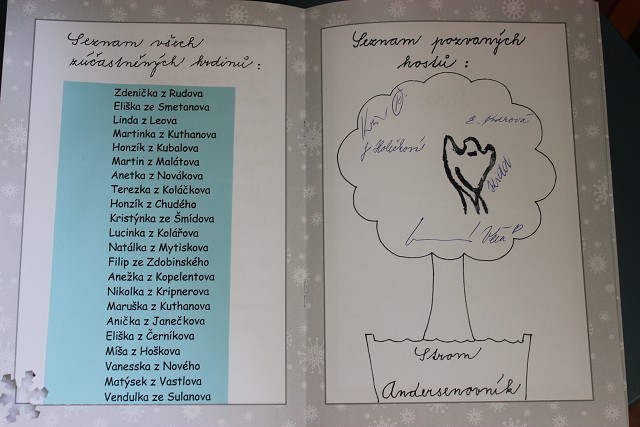 Seznam všech
zúčastněných hrdinů :
Zdenička z Rudova
Eliška ze Smetanova
Linda z Leova
Martinka z Kuthanova
Honzík z Kubalova
Martin z Malátova
Anetka z Novákova
Terezka z Koláčkova
Honzík z Chudého
Kristýnka ze Šmídova
Lucinka z Kolářova
Natálka z Mytiskova
Filip ze Zdobinského
Anežka z Kopelentova
Nikolka z Kripnerova
Maruška z Kuthanova
Anička z Janečkova
Eliška z Černíkova
Míša z Hoškova
Vanesska z Nového
Matýsek z Vastlova
Vendulka ze Sulanova
Seznam pozvaných
hostů :
Strom
Andersenovník